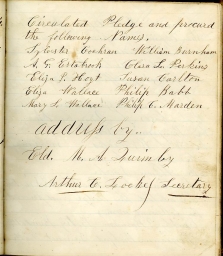 Circulated Pledge and procured
the following Names.
Sylvester Cochran William Burnham
A. G. Estabrook Clara L. Perkins
Eliza S. Hoyt Susan Carlton
Eliza Wallace Philip Babb
Mary S. Wallace Philip C. Marden
address by.
Eld. N. A Quimby
Arthur C. Locke Secretary